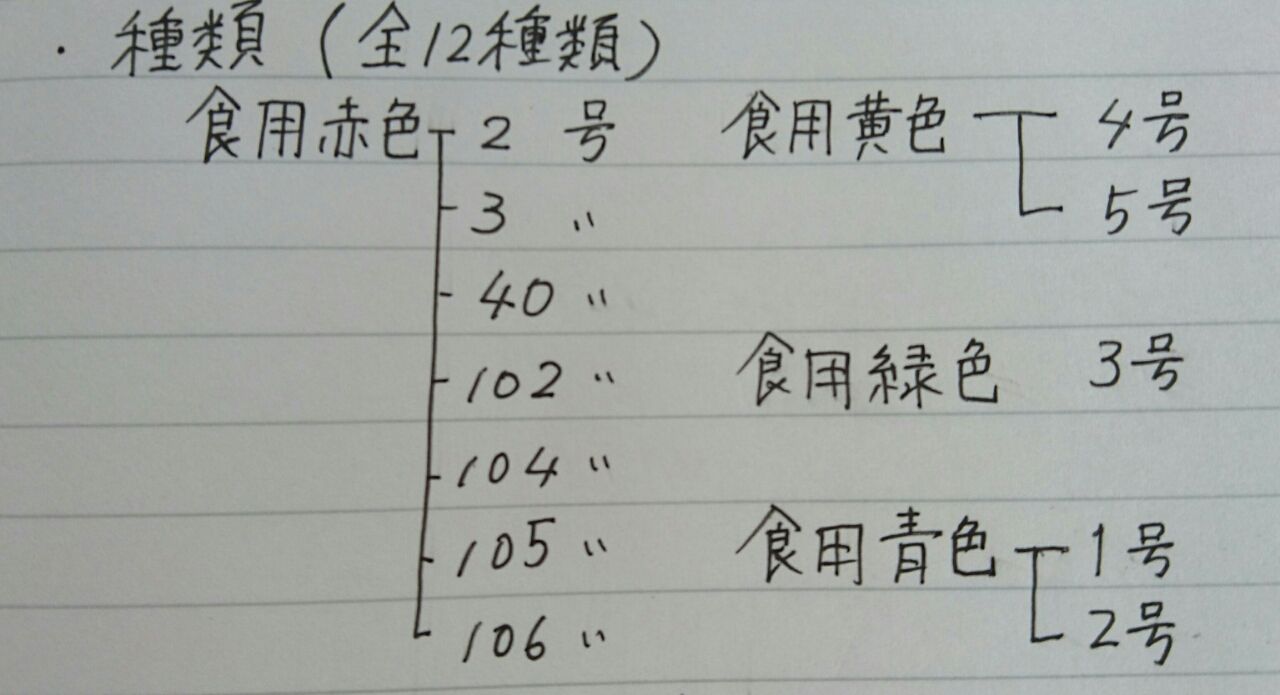 ・種類(全12種類)
食用赤色 2 号 食用黄色 4号
3 〃 5号
40 〃
102 〃 食用緑色 3号
104 〃
105 〃 食用青色 1号
106 〃 2号